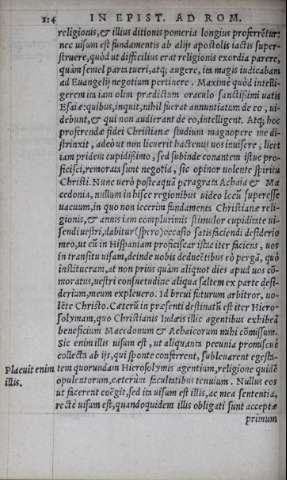 214 IN EPIST. AD ROM.
religionis, & illius ditionis pomeria longius proferrẽtur:
nec uisum est fundamentis ab alijs apostolis iactis super-
struere, quòd ut difficilius erat religionis exordia parere,
quàm semel parta tueri, atq; augere, ita magis iudicabam
ad Euangelij negotium pertinere. Maximè quòd intelli-
gerem id iam olim prædictum oraculo sanctissimi uatis
Esaiæ: quibus, inquit, nihil fuerat annuntiatum de eo, ui-
debunt, & qui non audierant de eo, intelligent. Atq; hoc
proferendæ fidei Christianæ studium magnopere me di-
strinxit, adeò ut non licuerit hactenus uos inuisere, licet
iam pridem cupidissimo, sed subinde conantem istuc pro-
ficisci, remorata sunt negotia, sic opinor uolente spiritu
Christi. Nunc uerò posteaquã peragrata Achaia & Ma
cedonia, nullum in hisce regionibus uideo locũ superesse
uacuum, in quo non iecerim fundamenta Christianæ reli-
gionis, & annis iam complurimis stimulor cupiditate ui-
sendi uestri, dabitur (spero) occasio satisfaciendi desiderio
meo, ut cũ in Hispaniam proficiscar istac iter faciens, uos
in transitu uisam, deinde uobis deducẽtibus eò pergã, quò
institueram, at non prius quàm aliquot dies apud uos cõ-
moratus, uestri consuetudine aliqua saltem ex parte desi-
derium, meum expleuero. Id breui futurum arbitror, uo-
lẽte Christo. Cæterũ in præsenti destinatũ est iter Hiero-
solymam, quo Christianis Iudæis illic agentibus exhibeã
beneficium Macedonum & Achaicorum mihi cõmissum.
Sic enim illis uisum est, ut aliquam pecunia promiscuè
collecta ab ijs, qui sponte conferrent, subleuarent egesta-
Placuit enim illis.
tem quorundam Hierosolymis agentium, religione quidẽ
opulentorum, cæterùm facultatibus tenuium. Nullus eos
ut facerent coëgit, sed ita uisum est illis, ac mea sententia,
rectè uisum est, quandoquidem illis obligati sunt acceptæ
primum